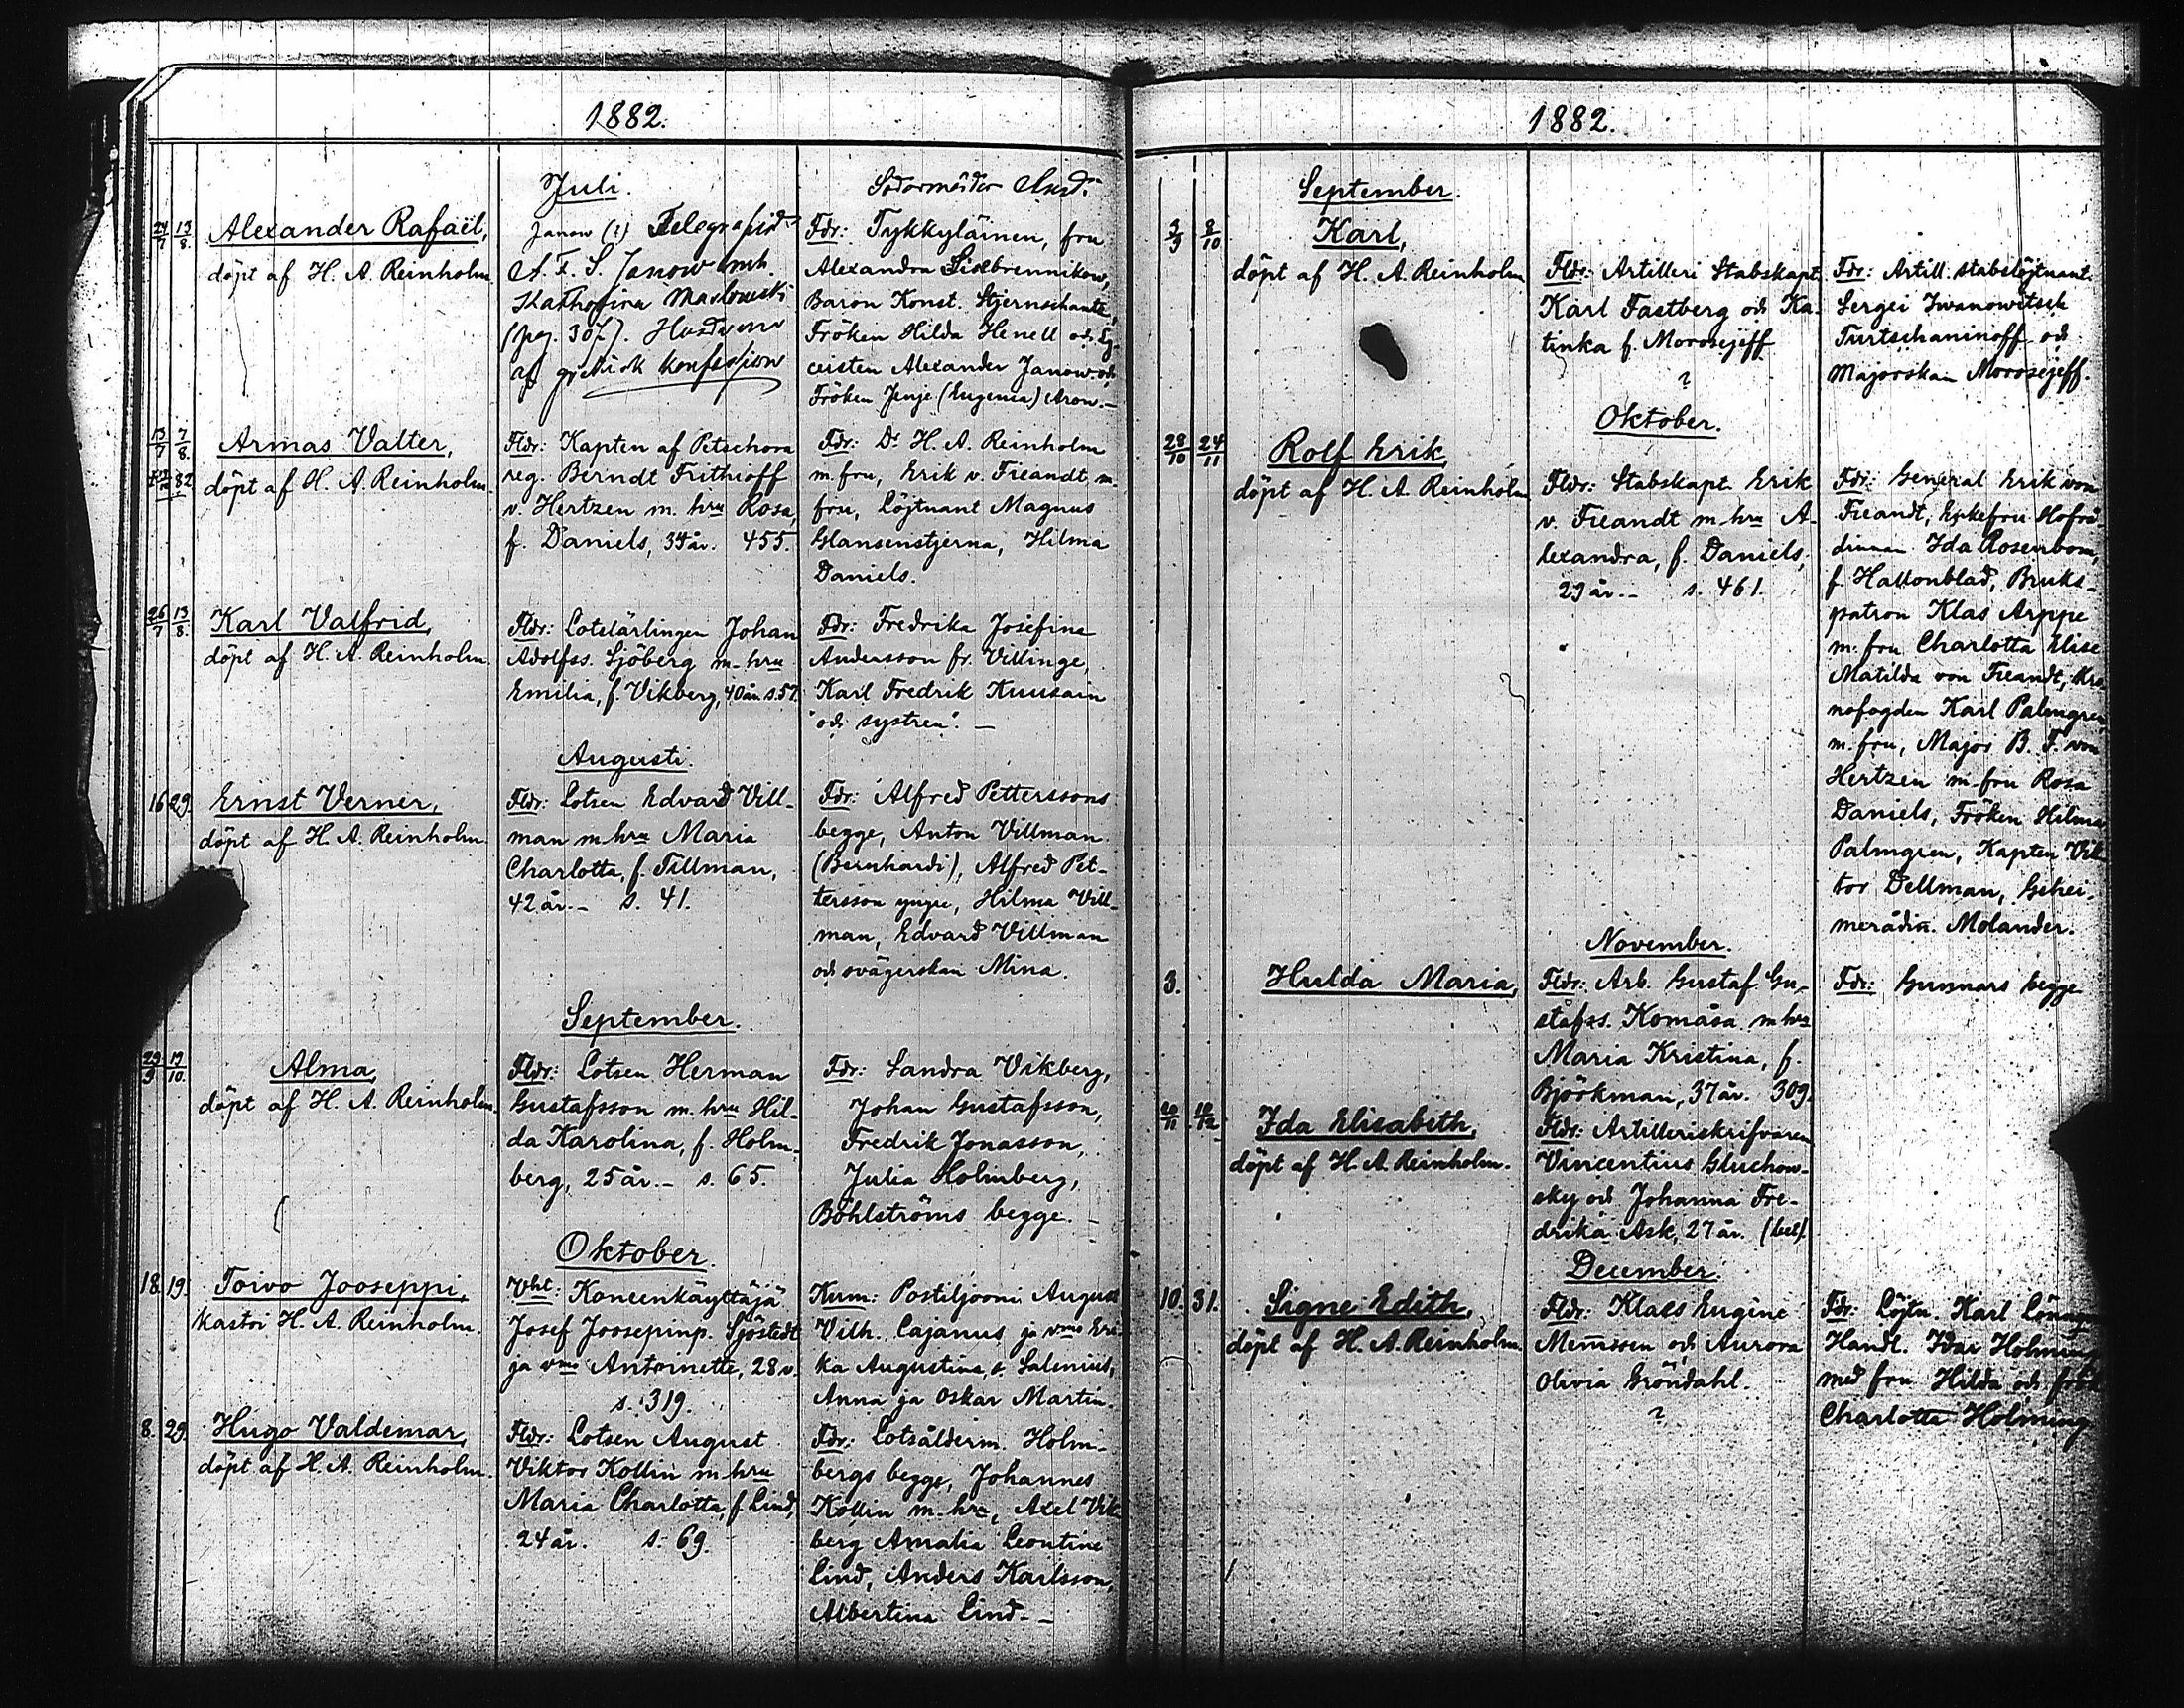 1882.
Juli.
24/7 13/8.
Alexander Rafaël,
döpt af H. A. Reinholm
Janow (?)
A. F. S. Janow
(pag. 307).
af grekisk konfession
Fdr: Tykkyläinen, fru
Alexandra
Baron Konst. Stjernschantz,
Fröken Hilda Henell och Ly-
ceisten Alexander Janow och
Fröken Jenje (Eugenia) Aron. –
13/7 7/8.
82
Armas Valter,
döpt af H. A. Reinholm.
Fldr: Kapten af Petschora
reg. Berndt Frithioff
v. Hertzen m. hru Rosa,
f. Daniels, 34 år. 455.
Fdr: Dr H. A. Reinholm
m. fru, Erik v. Freandt m.
fru, Löjtnant Magnus
Glansenstjerna, Hilma
Daniels.
26/7 13/8.
Karl Valfrid,
döpt af H. A. Reinholm.
Fldr: Lotslärlingen Johan
Adolfss. Sjöberg m. hru
Emilia, f. Vikberg, 40 år s. 57.
Fdr: Fredrika Josefina
Andersson fr. Villinge,
Karl Fredrik Kuusain
"och systren". –
Augusti.
16 29.
Ernst Verner,
döpt af H. A. Reinholm.
Fldr: Lotsen Edvard Vill-
man m. hru Maria
Charlotta, f. Tillman,
42 år. – s. 41.
Fdr: Alfred Petterssons
begge, Anton Villman
(Bernhardi), Alfred Pet-
tersson yngre, Hilma Vill-
man, Edvard Villman
och svägerskan Mina.
September.
29/9 19/10.
Alma,
döpt af H. A. Reinholm.
Fldr: Lotsen Herman
Gustafsson m. hru Hil-
da Karolina, f. Holm-
berg, 25 år. – s. 65.
Fdr: Sandra Vikberg,
Johan Gustafsson,
Fredrik Jonasson,
Julia Holmberg,
Böhlströms begge. –
Oktober.
18. 19.
Toivo Jooseppi,
kastoi H. A. Reinholm.
Vht: Koneenkäyttäjä
Josef Joosepinp. Sjöstedt
ja vmo Antoinette, 28 v.
s. 319.
Kum: Postiljooni August
Vilh. Cajanus ja vmo Eri-
ka Augustina, s. Salenius,
Anna ja Oskar Martin.
8. 29.
Hugo Valdemar,
döpt af H. A. Reinholm.
Fldr: Lotsen August
Viktor Kollin m. hru
Maria Charlotta, f. Lind,
24 år. s. 69.
Fdr: Lotsålderm. Holm-
bergs begge, Johannes
Kollin m. hru, Axel Vik-
berg Amalia Leontine
Lind, Anders Karlsson,
Albertina Lind. –
1882.
September.
8/10
Karl,
döpt af H. A. Reinholm
Fldr: Artilleri Stabskapt.
Karl Fastberg och Ka-
tinka f. Morosejeff
?
Fdr: Artill. stabslöjtnant
Sergei Iwanowitsch
Turtschaninoff och
Majorskan Morosejeff.
Oktober.
28/10 24/11
Rolf Erik,
döpt af H. A. Reinholm
Fldr: Stabskapt. Erik
v. Freandt m. hru A-
lexandra, f. Daniels,
29 år. – s. 461.
Fdr: General Erik von
Freandt, Enkefru Hofrå-
dinnan Ida Rosenbom,
f. Hallonblad, Bruks-
patron Klas Arppe
m. fru Charlotta Elise
Matilda von Freandt, Kro-
nofogden Karl Palmgren
m. fru, Major B. F. von
Hertzen m. fru Rosa
Daniels, Fröken Hilma
Palmgren, Kapten Vik-
tor Dellman, Gehei-
merådin. Molander.
November.
3.
Hulda Maria,
Fldr: Arb. Gustaf Gu-
stafss. Komåsa m. hru
Maria Kristina, f.
Björkman, 37 år. 309.
Fdr: Gunnars begge
20/11 10/12
Ida Elisabeth,
döpt af H. A. Reinholm.
Fldr: Artilleriskrifvaren
Vincentius Gluchow-
sky och Johanna Fre-
drika Ask, 27 år.
December.
10. 31.
Signe Edith,
döpt af H. A. Reinholm.
Fldr: Klaes Eugine
Menssen och Aurora
Olivia Gröndahl.
?
Fdr: Löjtn. Karl
Handl. Ivar Holming
med fru Hilda och
Charlotta Holming